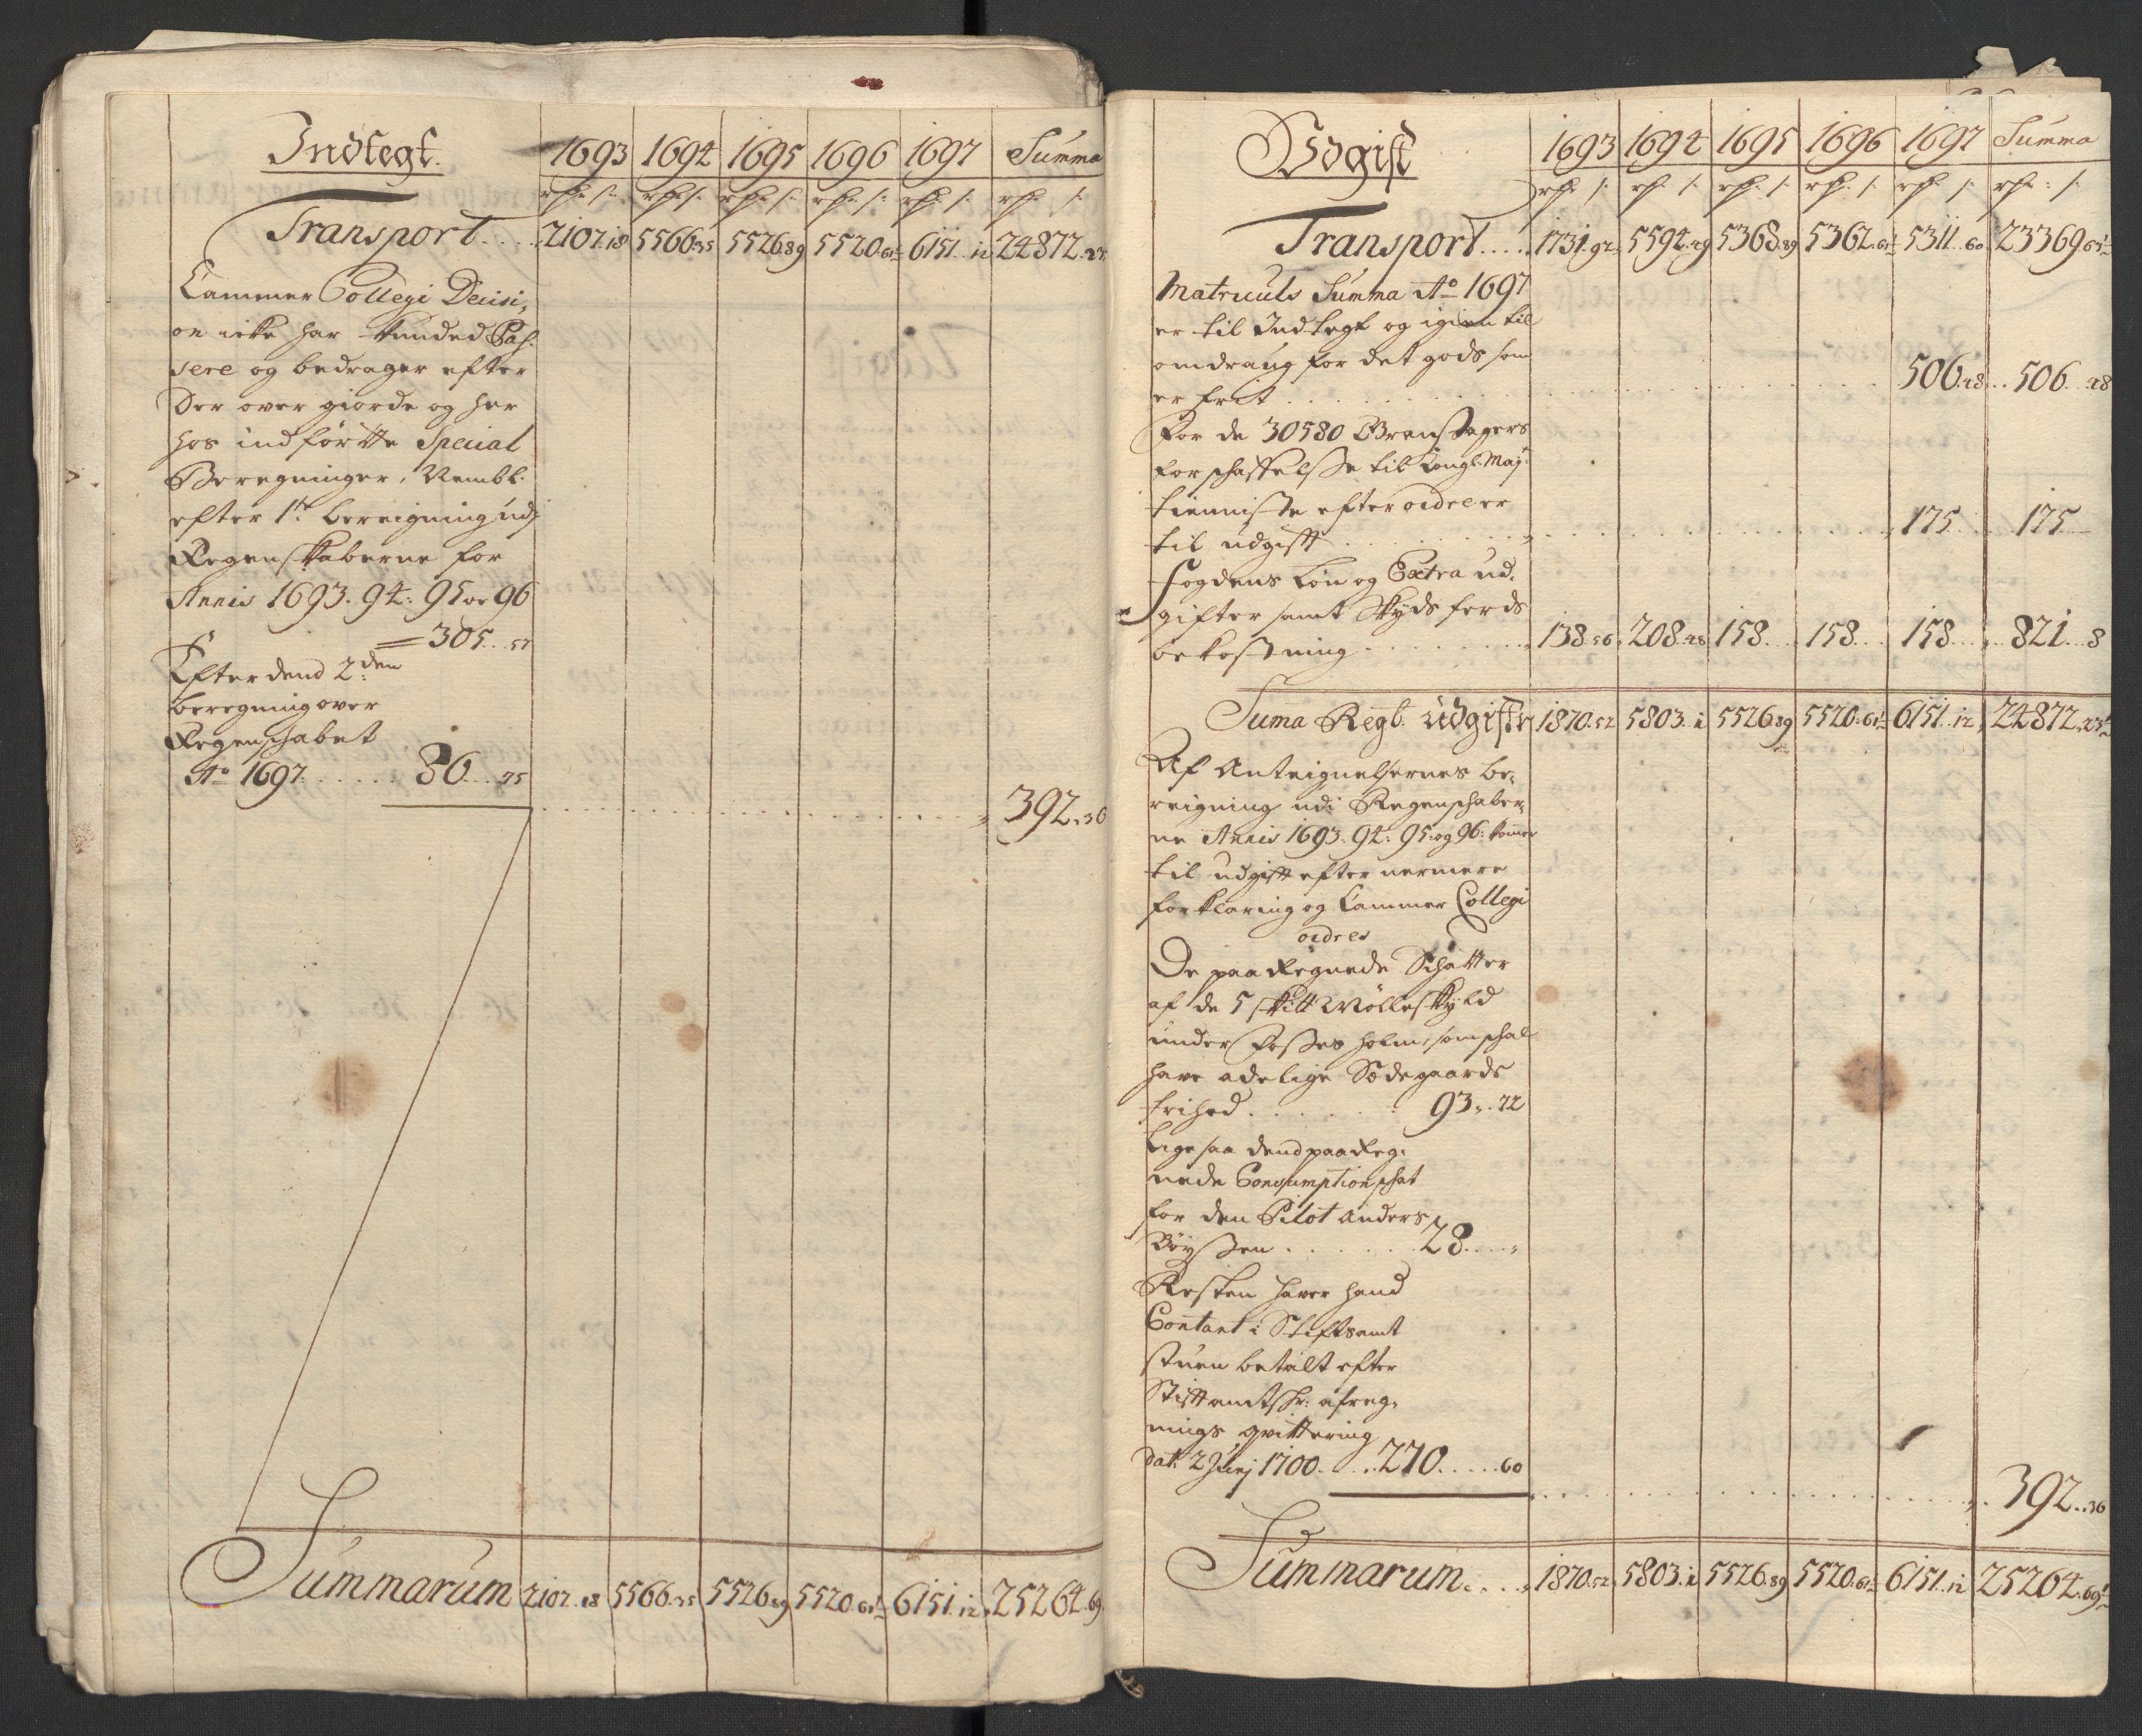 Indtegt.
1693 1694 1695 1696 1697 Summa
rdr. s. rdr. s. rdr. s. rdr. s. rdr. s. rdr. s.
Transport.... 2107.18 5566.35 5526.89 5520.61½ 6151.12 24872.23½
Cammer Collegi Decisi,
on icke har kunded Pas,
sere og bedrager efter
Der over giorde og her
hos indførtte Special
Beregninger, Nembl.
efter 1te bereigning udj
Regenskaberne for
Annis 1693. 94. 95 og 96
= 305..57
Efter dend 2den
beregning over
Regenschabet
Ao 1697...... 86...75
392.36
Summarum 2107.18 5566.35 5526.89 5520.61½ 6151.12 25264.69
Vdgift
1693 1694 1695 1696 1697 Summa
rdr. s. rdr. s. rdr. s. rdr. s. rdr. s. rdr. s.
Transport.... 1731.92 5594.49 5368.89 5362.61½ 5311..60 23369.63½
Matriculs Summa Ao 1697
er til Indtegt og igien til
omdraug for det gods som
er frit .... 506.48 .. 506..48
For de 30580 Grenstagers
forschaffelsse til Kongl. Maj:
tienniste efter ordre er
til udgift .... 175 .. 175
Fogdens Løn og Extra ud,
gifter samt Skydsferds
bekostning .... 138.56 208.48 158 158 158 821..8
Suma Regl. Udgifter 1870.52 5803.1 5526.89 5520.61½ 6151.12 24872.23½
Af Anteignelsernes be,
reigning udi Regenschaber,
ne Annis 1693. 94. 95. og 96. komer
til udgift efter nermere
forklaring og Cammer Collegi
ordres
De paaRegnede Schatter
af de 5 skilt Mølleskyld
under Fosses holm, som schal
have adelige Sædegaards
frihed ...... 93..72
Lige saa dend paaReg,
nede Consumptionschat
for den Pilot Anders
Bøyssen ...... 28....
Resten haver hand
Contant i Stiftsamt
stuen betalt efter
Stiftamtskr: afreg,
nings qvittering
dat. 2 Junj 1700. ...270.....60
392..36
Summarum.... 1870.52 5803.1 5526.89 5520.61½ 6151..12 25264.69½